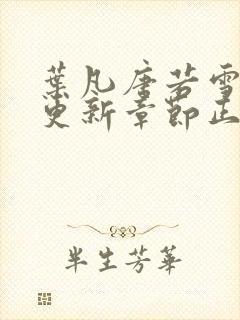 葉凡唐若雪
更新章節正
半生芳華